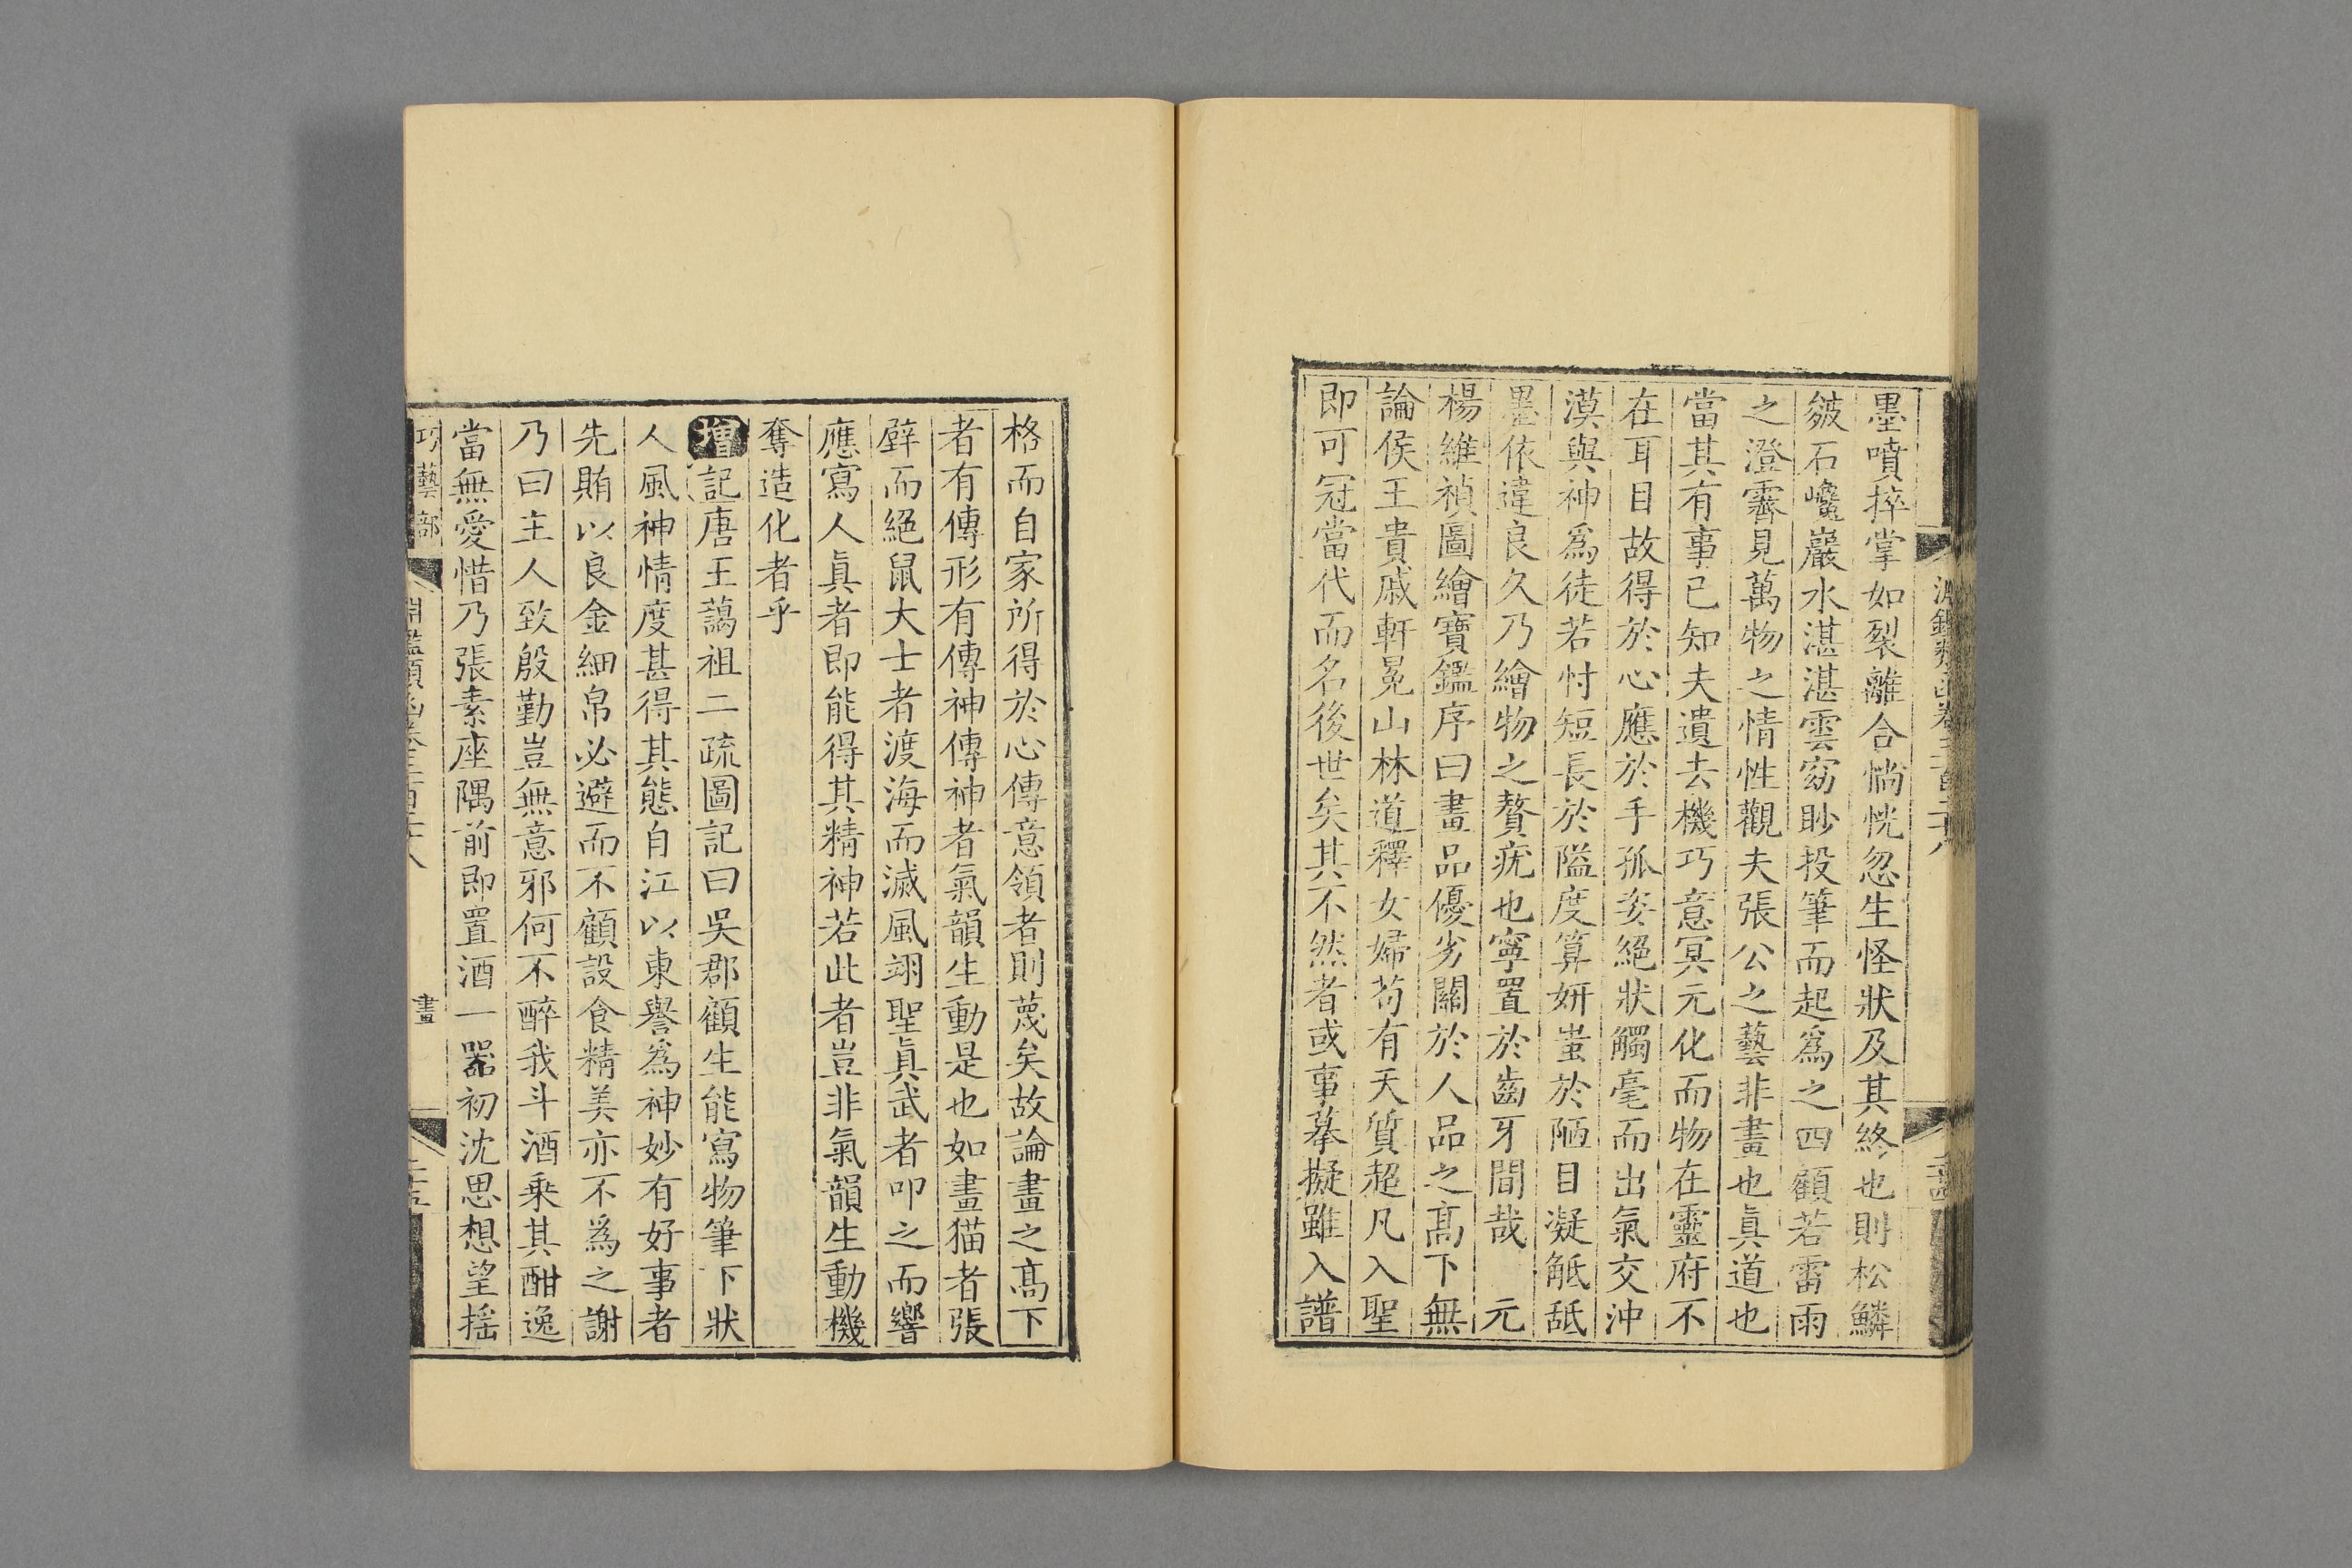 墨噴捽掌如裂離合惝恍忽生怪狀及其終也則松鱗
皴石巉巖水湛湛雲窈眇投筆而起爲之四顧若雷雨
之澄霽見萬物之情性觀夫張公之藝非畫也眞道也
當其有事已知夫遺去機巧意冥元化而物在靈府不
在耳目故得於心應於手孤姿絕狀觸毫而出氣交沖
漠與神爲徒若忖短長於隘度算妍蚩於陋目凝觝舐
墨依違良久乃繪物之贅疣也寧置於齒牙間哉 元
楊維禎圖繪寶鑑序曰畫品優劣關於人品之高下無
論侯王貴戚軒冕山林道釋女婦苟有天質超凡入聖
即可冠當代而名後世矣其不然者或事摹擬雖入譜
格而自家所得於心傳意領者則蔑矣故論畫之高下
者有傳形有傳神傳神者氣韻生動是也如畫猫者張
壁而絕鼠大士者渡海而滅風翊聖眞武者叩之而響
應寫人眞者即能得其精神若此者豈非氣韻生動機
奪造化者乎
增記唐王藹祖二疏圖記曰吳郡顧生能寫物筆下狀
人風神情度甚得其態自江以東譽爲神妙有好事者
先賄以良金細帛必避而不顧設食精美亦不爲之謝
乃曰主人致殷勤豈無意邪何不醉我斗酒乘其酣逸
當無愛惜乃張素座隅前即置酒一器初沈思想望搖
巧藝部 淵鑑類函卷三百二十八 畫